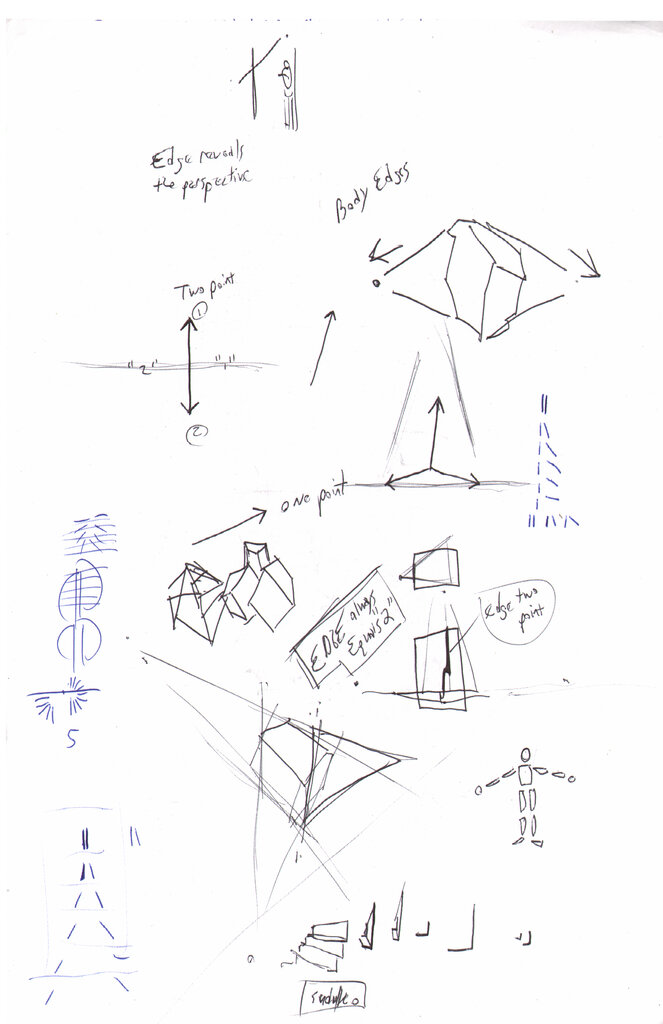 Edge reveals
the perspective
Body Edges
Two point
1
" "
" "
2
1
2
one point
EDGE always
Equals "2"
Edge two
point
5
1
1
2